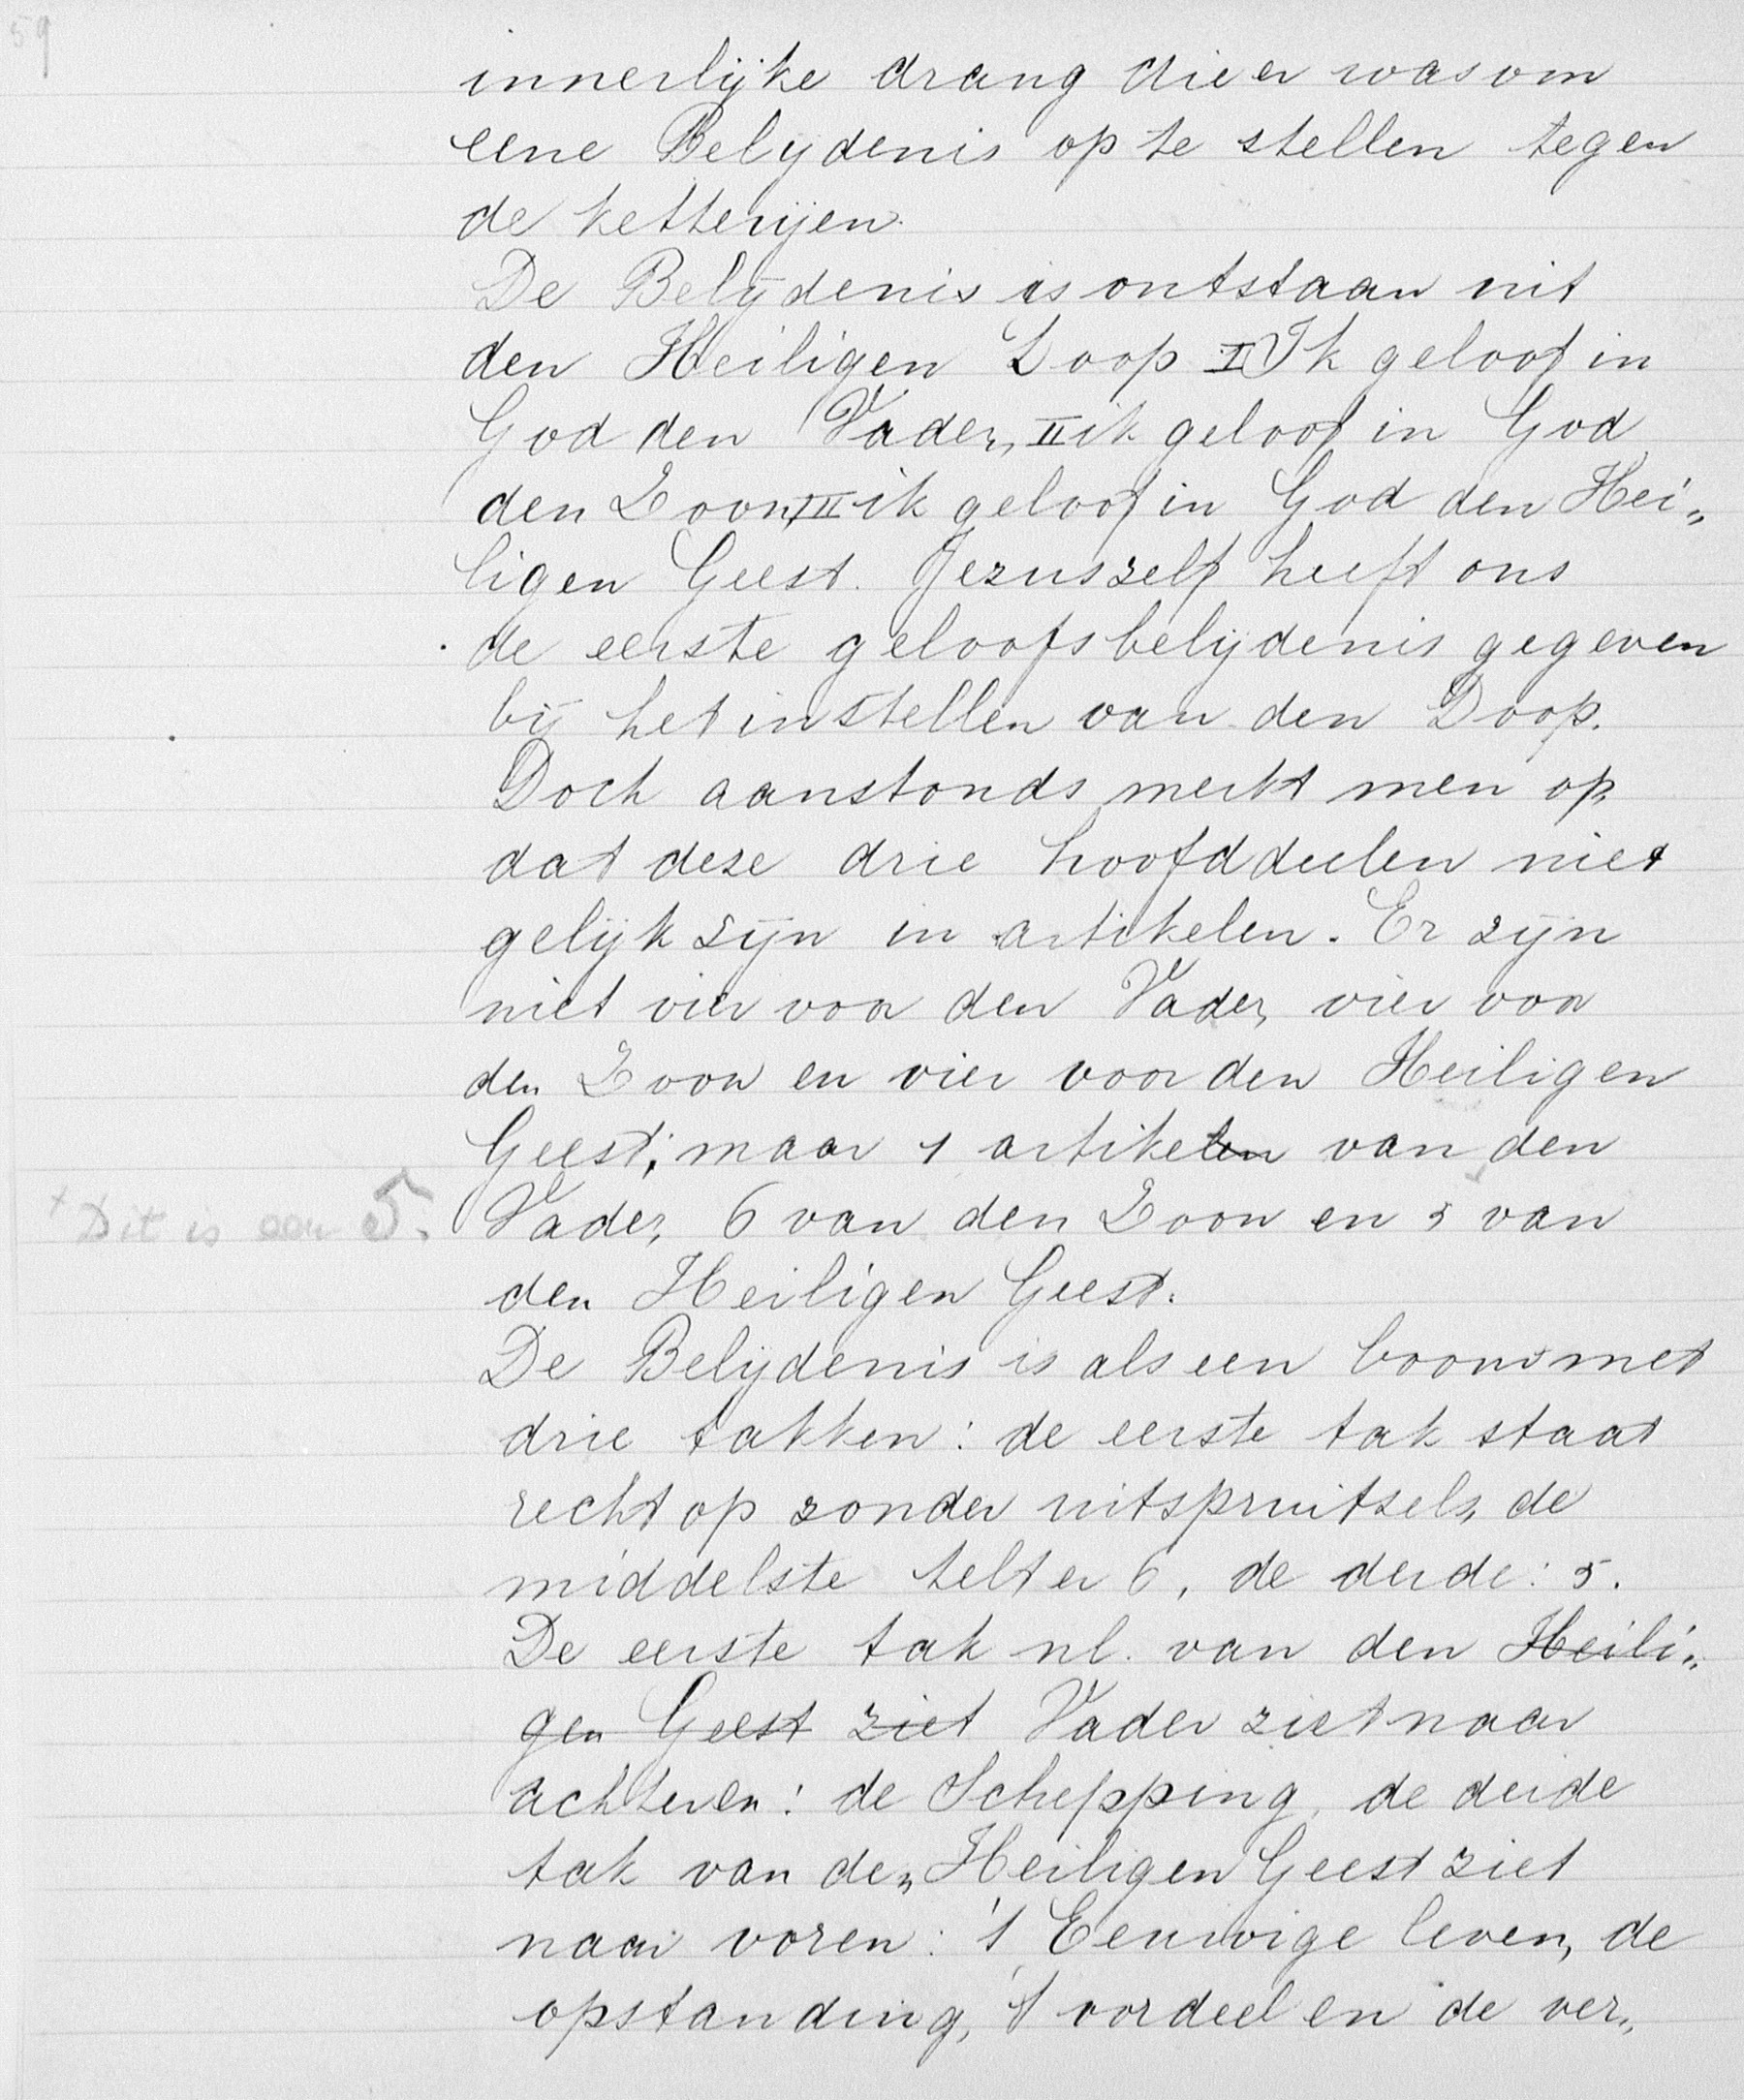 59
innerlijke drang die er was om
eene Belijdenis op te stellen tegen
de ketterijen.
De Belijdenis is ontstaan uit
den Heiligen Doop I Ik geloof in
God den Vader, II ik geloof in God
den Zoon, III ik geloof in God den Hei„
ligen Geest. Jezus zelf heeft ons
de eerste geloofsbelijdenis gegeven
bij het instellen van den Doop.
Doch aanstonds merkt men op,
dat deze drie hoofddeelen niet
gelijk zijn in artikelen. Er zijn
niet vier voor den Vader, vier voor
den Zoon en vier voor den Heiligen
Geest; maar 1 artikelen van den
+ Dit is een 5. Vader, 6 van den Zoon en 5 van
den Heiligen Geest.
De Belijdenis is als een boom met
drie takken: de eerste tak staat
recht op zonder uitspruitsels, de
middelste telt er 6, de derde: 5.
De eerste tak nl. van den Heili„
gen Geest ziet Vader ziet naar
achteren: de Schepping, de derde
tak van den Heiligen Geest ziet
naar voren: 't Eeuwige leven, de
opstanding, 't oordeel en de ver„